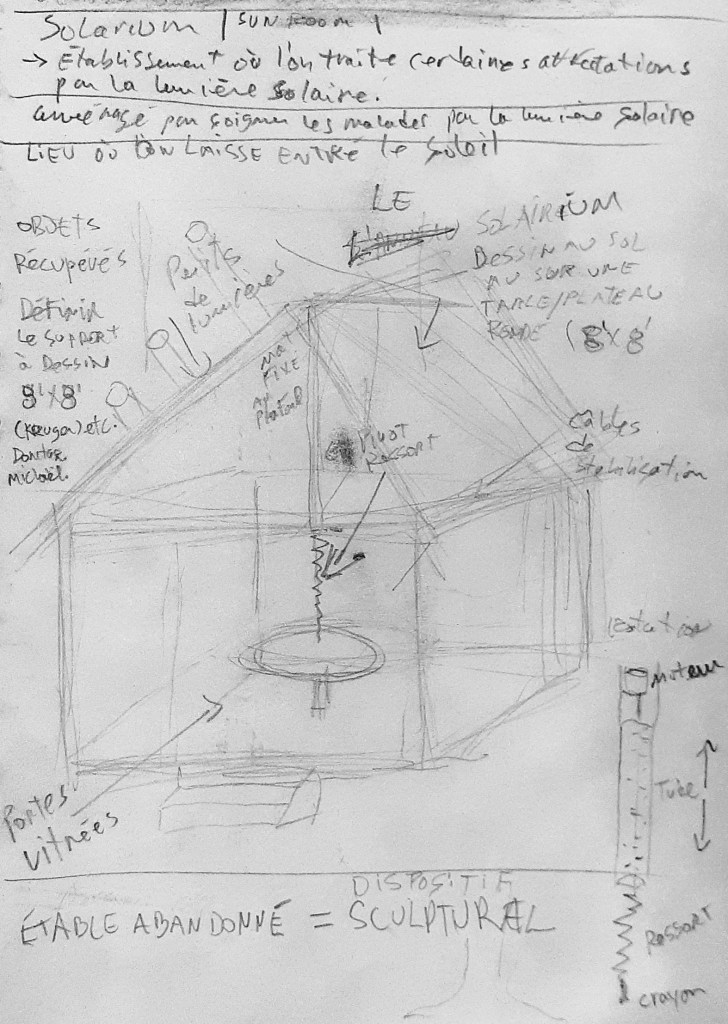 Solarium / SUN ROOM
→ Établissement où l'on traite certaines affectations
par la lumière solaire.
aménagé par soigner les malades par la lumière solaire
LIEU OÙ L'ON LAISSE ENTRÉ le soleil
LE
SOLAIRIUM
DESSIN AU SOL
AU SUR UNE
TABLE/PLATEAU
RONDE (8'x8'
OBJETS
Récupérés
Définir
Le support
à Dessin
8'x8'
etc.
Michael.
Puits
de
lumières
mat
FIXE
au
Plafond
Pivot
Ressort
câbles
de
stabilisation
Portes
vitrées
moteur
Tube
Ressort
crayon
DISPOSITIF
ÉTABLE ABANDONNÉ = SCULPTUREL